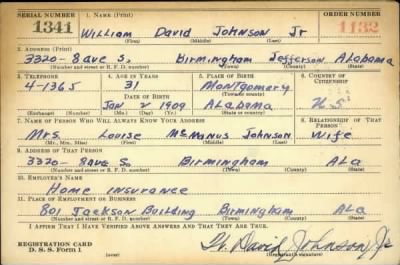 SERIAL NUMBER 1. NAME (Print) ORDER NUMBER
1341 William David Johnson Jr 1132
(First) (Middle) (Last)
2. ADDRESS (Print)
3320-8 ave S. Birmingham Jefferson Alabama
(Number and street or R. F. D. number) (Town) (County) (State)
3. TELEPHONE 4. AGE IN YEARS 5. PLACE OF BIRTH 6. COUNTRY OF CITIZENSHIP
4-1365 31 Montgomery
DATE OF BIRTH (Town or county)
Jan 2 1909 Alabama
(Exchange) (Number) (Mo.) (Day) (Yr.) (State or country)
7. NAME OF PERSON WHO WILL ALWAYS KNOW YOUR ADDRESS 8. RELATIONSHIP OF THAT PERSON
Mrs. Louise McManus Johnson Wife
(Mr., Mrs., Miss) (First) (Middle) (Last)
9. ADDRESS OF THAT PERSON
3320-8 ave So Birmingham Ala
(Number and street or R. F. D. number) (Town) (County) (State)
10. EMPLOYER'S NAME
Home Insurance
11. PLACE OF EMPLOYMENT OR BUSINESS
801 Jackson Building Birmingham Ala
(Number and street or R. F. D. number) (Town) (County) (State)
I AFFIRM THAT I HAVE VERIFIED ABOVE ANSWERS AND THAT THEY ARE TRUE.
REGISTRATION CARD
D. S. S. Form 1
W. David Johnson, Jr
(Registrant's signature)